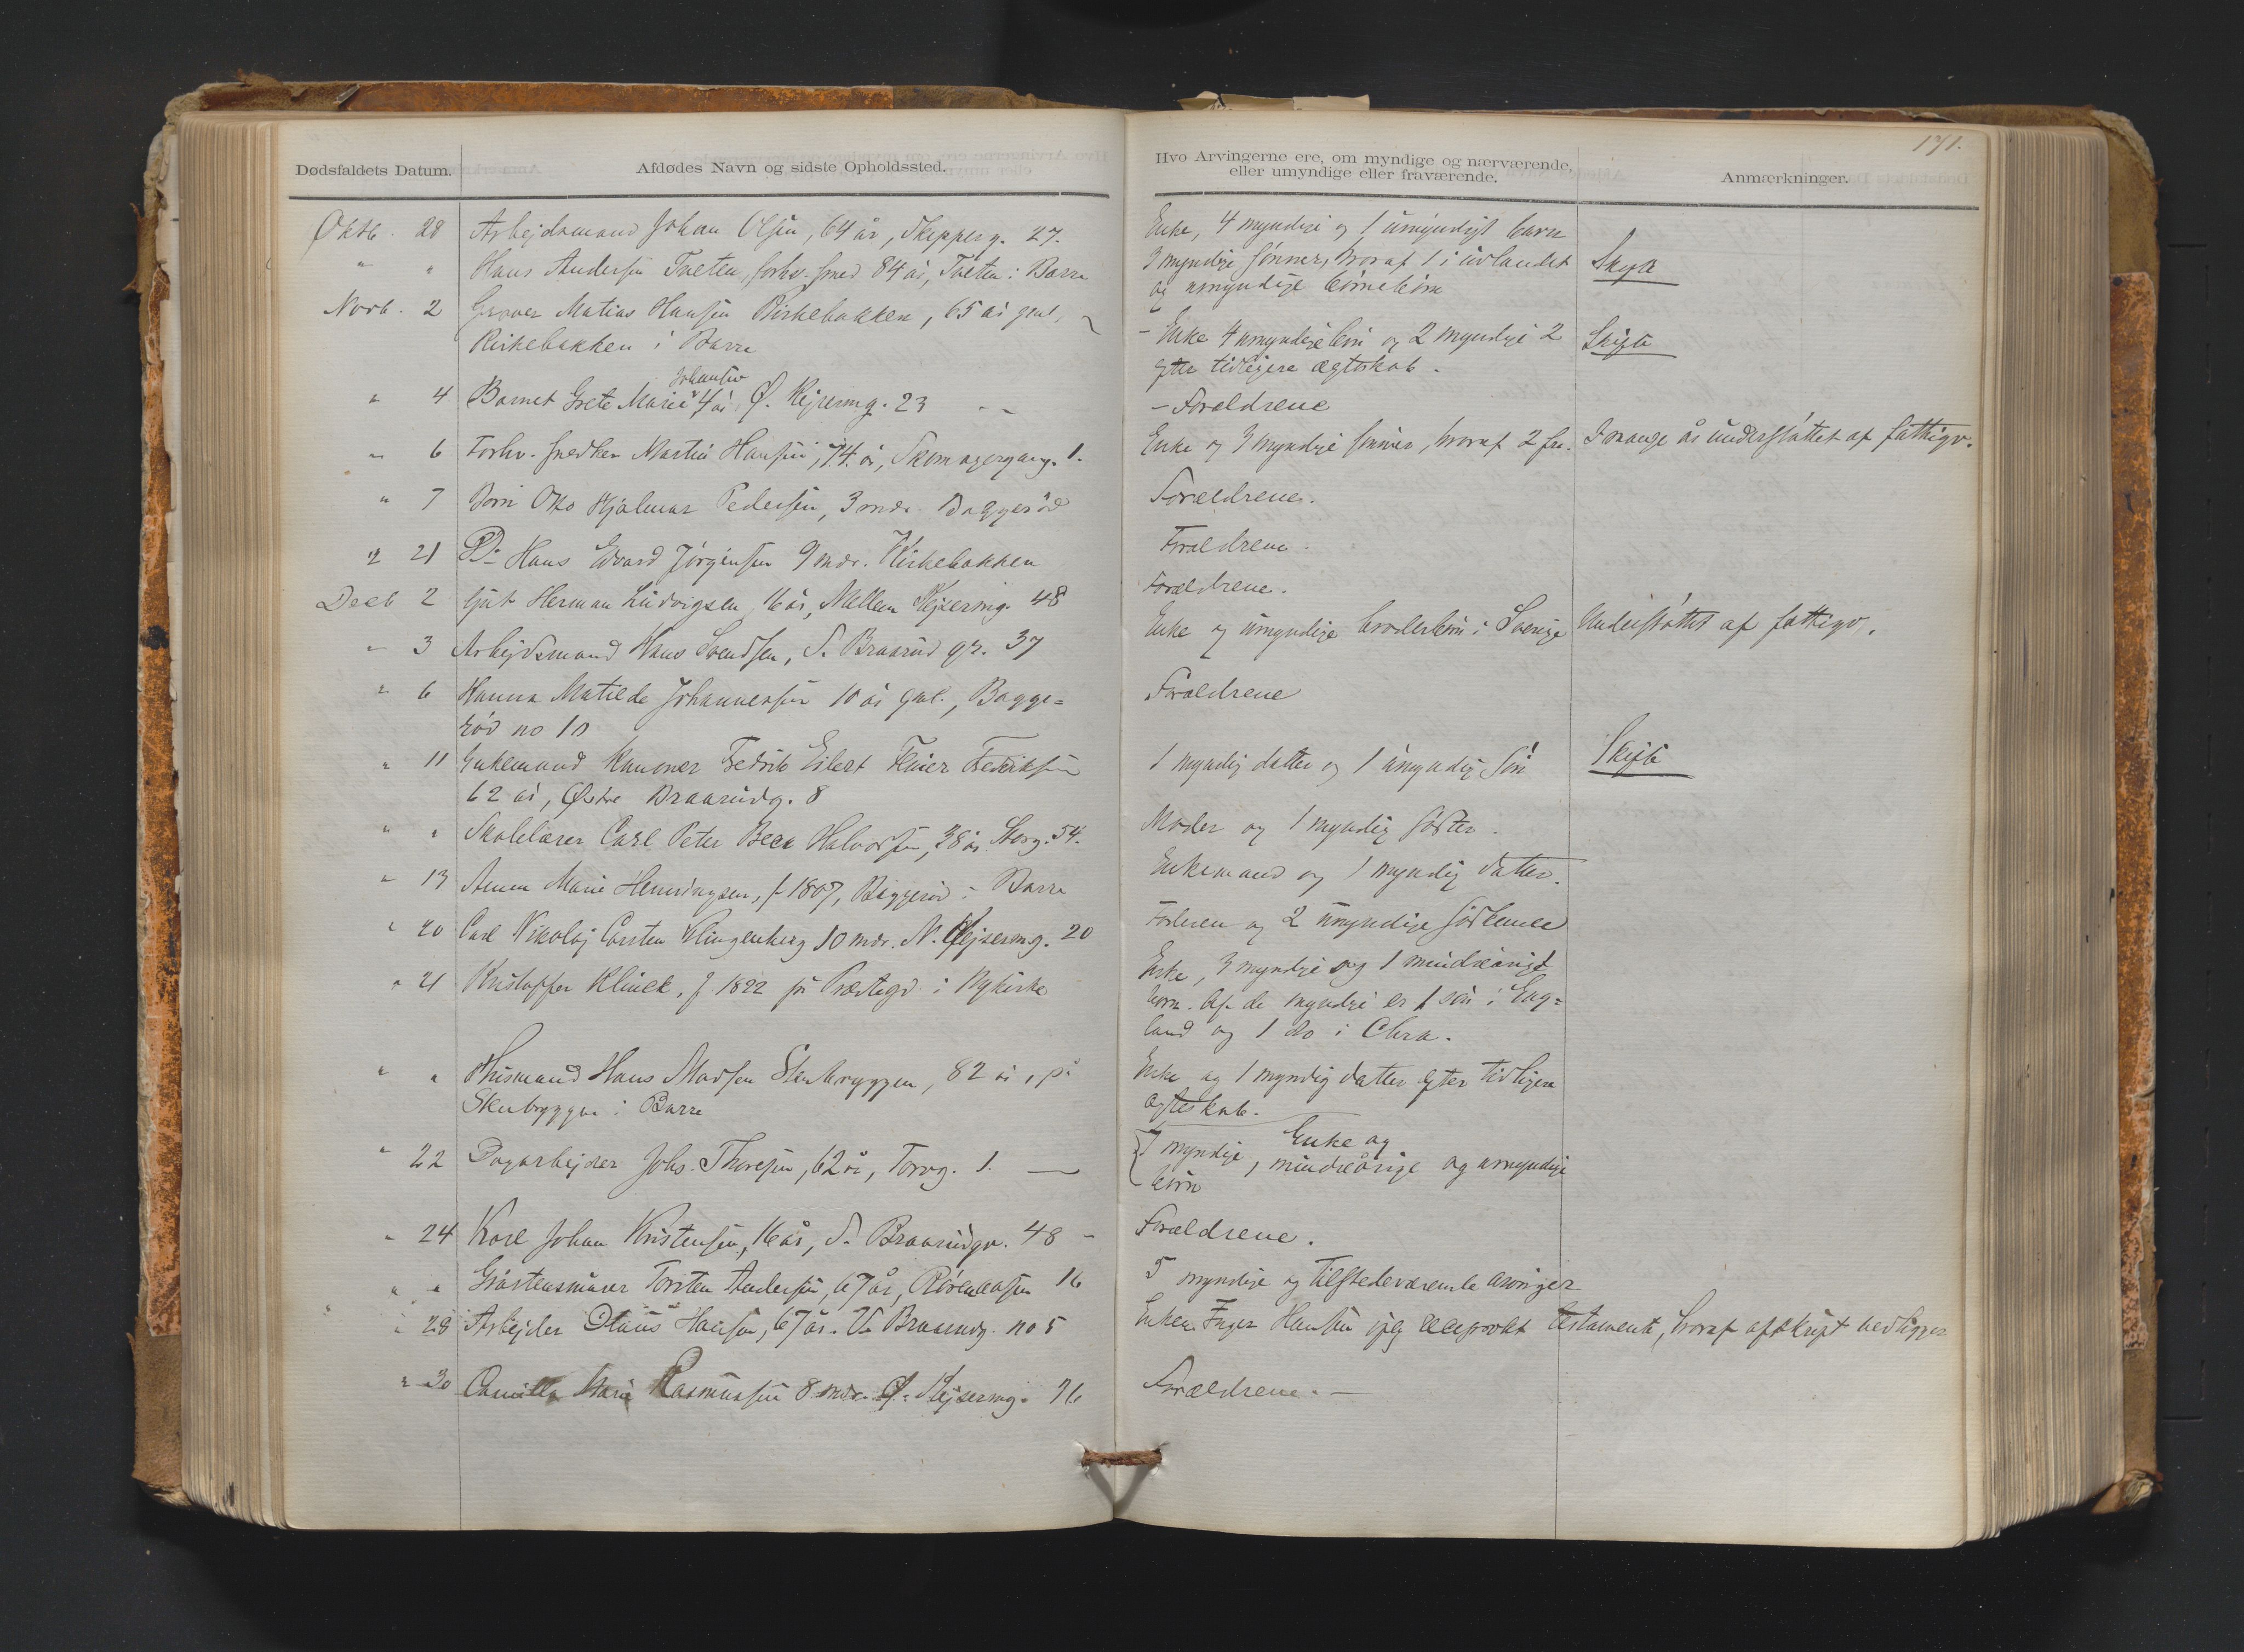 171.
Dødsfaldets Datum.
Afdødes Navn og sidste Opholdssted.
Hvo Arvingerne ere, om myndige og nærværende,
eller umyndige eller fraværende.
Anmærkninger.
Oktb. 28 Arbejdsmand Johan Olsen, 64 år, Skipperg. 27.
Enke, 4 myndige og 1 umyndigt barn
" " Hans Andersen Tveten, forhv. smed 84 år, Tveten i Borre
3 myndige sønner, hvoraf 1 i udlandet
og umyndige børnebørn
Skifte
Novb. 2 Matias Hansen Kirkebakken, 65 år gml,
Kirkebakken i Borre
- Enke 4 umyndige børn og 2 myndige 2
efter tidligere ægteskab.
Skifte
" 4 Barnet Grete Marie Johansen 4 år Ø. Kejserng. 23
- Forældrene
" 6 Forhv. snedker Martin Hansen, 74 år, Skomagergang. 1.
Enke og 3 myndige sønner, hvoraf 2 fra.
I mange år understøttet af fattigv.
" 7 Barn Otto Hjalmar Pedersen, 3 mdr. Baggerød
Forældrene.
" 21 Do Hans Edvard Jørgensen 9 mdr. Kirkebakken
Forældrene.
Decb 2 Gut Herman Ludvigsen, 16 år, Mellem Kejserng. 48
Forældrene.
" 3 Arbejdsmand Hans Svendsen, S. Braarud gr. 37
Enke og umyndige broderbørn i Sverige
Understøttet af fattigv.
" 6 Hanna Matilde Johannessen 10 år gml., Bagge=
rød no 10
Forældrene
" 11 Enkemand Kanoner Fredrik Eilert Fredriksen
62 år, Østre Braarudg. 8
1 myndig datter og 1 umyndig søn
Skifte
" " Skolelærer Carl Peter Beck Halvorsen, 38 år Storg. 54.
Moder og 1 myndig søster.
" 13 Marie f 1807, Baggerød i Borre
Enkemand og 1 myndig datter.
" 20 Carl Nikolaj Carsten Klingenberg 10 mdr. N. Kejserng. 20
og 2 umyndige søskende
" 21 Kristoffer Klinck, f 1822 på Præstegd. i Nykirke
Enke, 3 myndige og 1 mindreårigt
børn. Af de myndige er 1 søn i Eng=
land og 1 do i Chra.
" " Husmand Hans Madsen Stenbryggen, 82 år, på
Stenbryggen i Borre
Enke og 1 myndig datter efter tidligere
ægteskab.
" 22 Dagarbejder Johs. Thoresen, 62 år, Torvg. 1. —
Enke og
7 myndige, mindreårige og umyndige
børn
" 24 Karl Johan Kristensen, 16 år, S. Braarudgr. 48 -
Forældrene.
" " Gråstensmurer Torsten Andersen, 67 år, 16
5 myndige og tilstedeværende arvinger
" 28 Arbejder Hansen, 67 år. V. Braarudg. no 5
Enken Inger Hansen iflg reciprokt testamente, hvoraf afskrift vedligger
" 30 Camilla Marie Rasmussen 8 mdr. Ø. Kejserng. 76
Forældrene. —